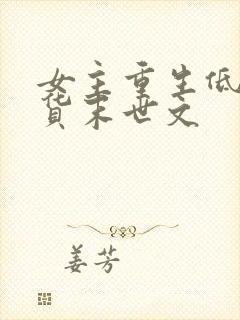 女主重生低
货末世文
姜芳